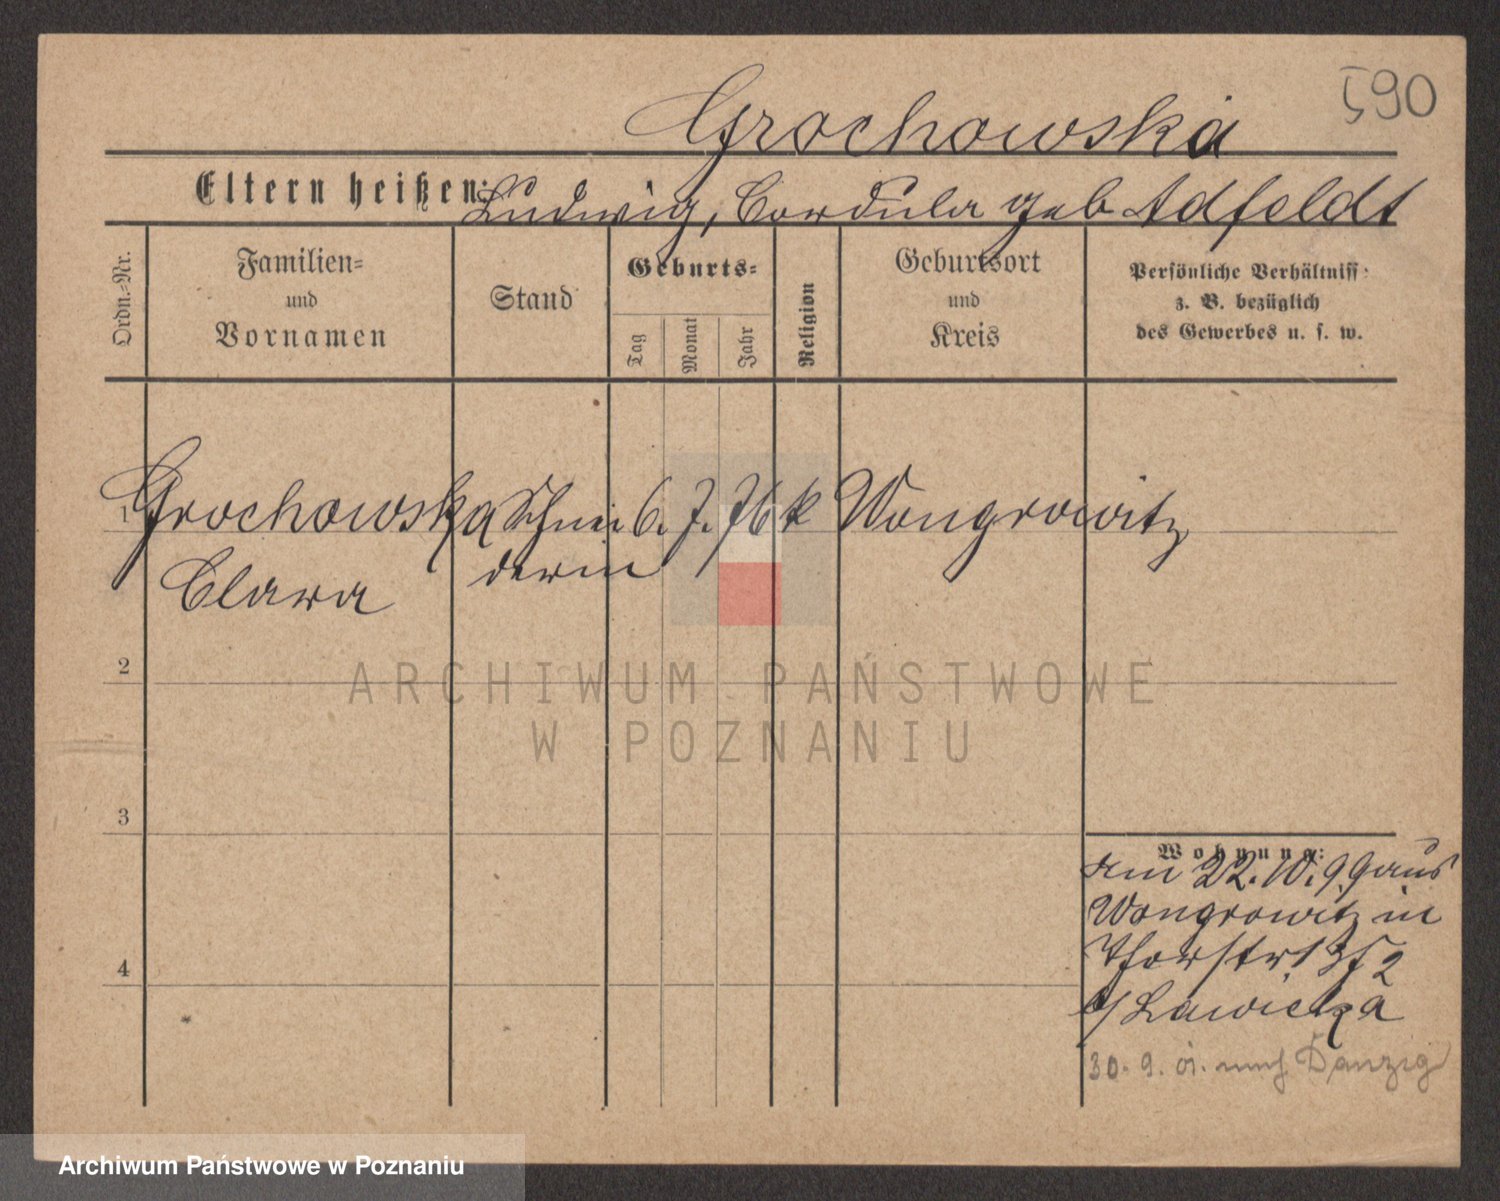 590
Grochowska
Eltern heißen: Ludwig, Cordula geb Adfeldt
Ordn.-Nr.
Familien-
und
Vornamen
Stand
Geburts-
Tag
Monat
Jahr
Religion
Geburtsort
und
Kreis
Persönliche Verhältniss
z. B. bezüglich
des Gewerbes u. s. w.
1 Grochowska Schnei 6. 7. 76 k Wongrowitz
Clara derin
2
3
4
Wohnung:
am 22.10.99 aus
Wongrowitz in
b/ Lawicka
30. 9. 01. nach Danzig
ARCHIWUM PAŃSTWOWE
W POZNANIU
Archiwum Państwowe w Poznaniu